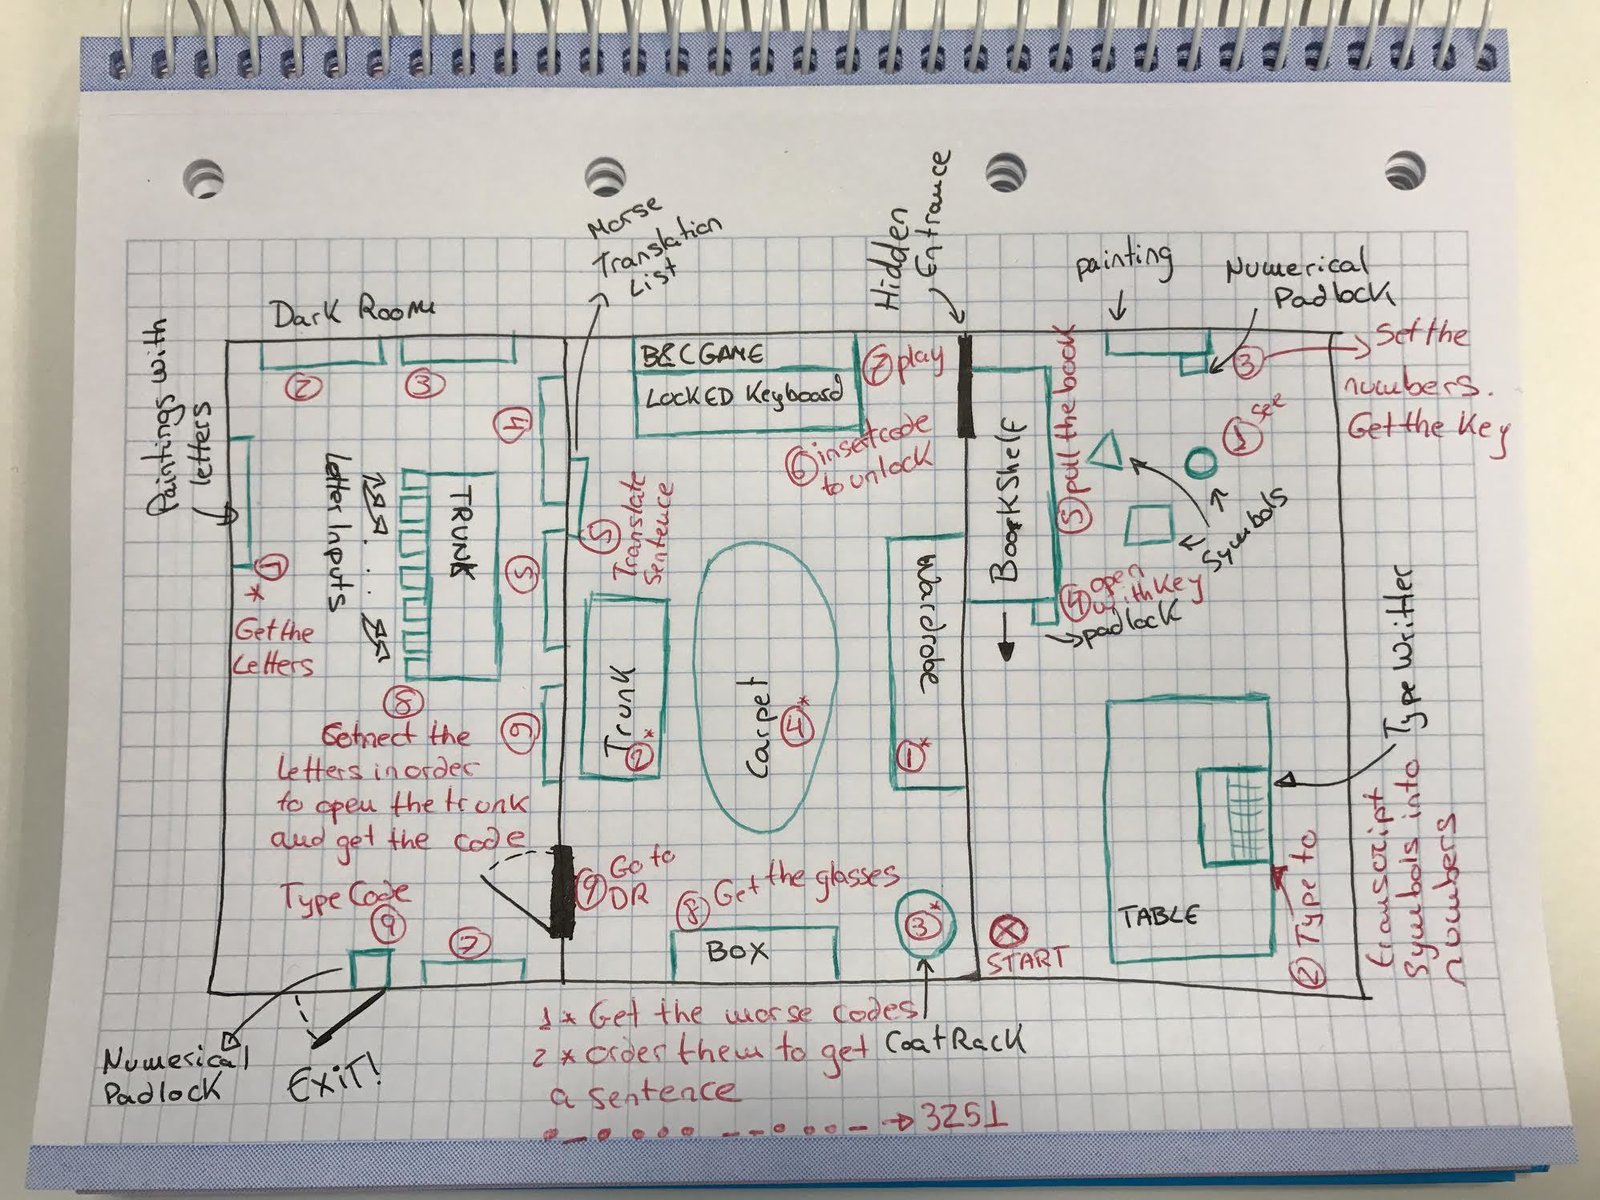 Morse
Translation
List
Hidden
Entrance
painting
Numerical
Padlock
Dark Room
Paintings with
letters
B&C GAME
LOCKED Keyboard
7 play
6 insert code
to unlock
5 pull the book
3
Set the
numbers.
Get the Key
1 see
Symbols
2
3
4
5
6
7
1
*
Get the
Letters
Letter Inputs
TRUNK
8
Connect the
Letters in order
to open the trunk
and get the code
Type Code
9
5
Translate
Sentence
Trunk
2*
Carpet
4*
Wardrobe
1*
BookShelf
4 open
with Key
padlock
Type Writter
TABLE
2 Type to
transcript
Symbols into
numbers
START
9 Go to
DR
8 Get the glasses
BOX
3*
Numerical
Padlock
EXIT!
1* Get the morse codes
2* order them to get
a sentence
CoatRack
→ 3251